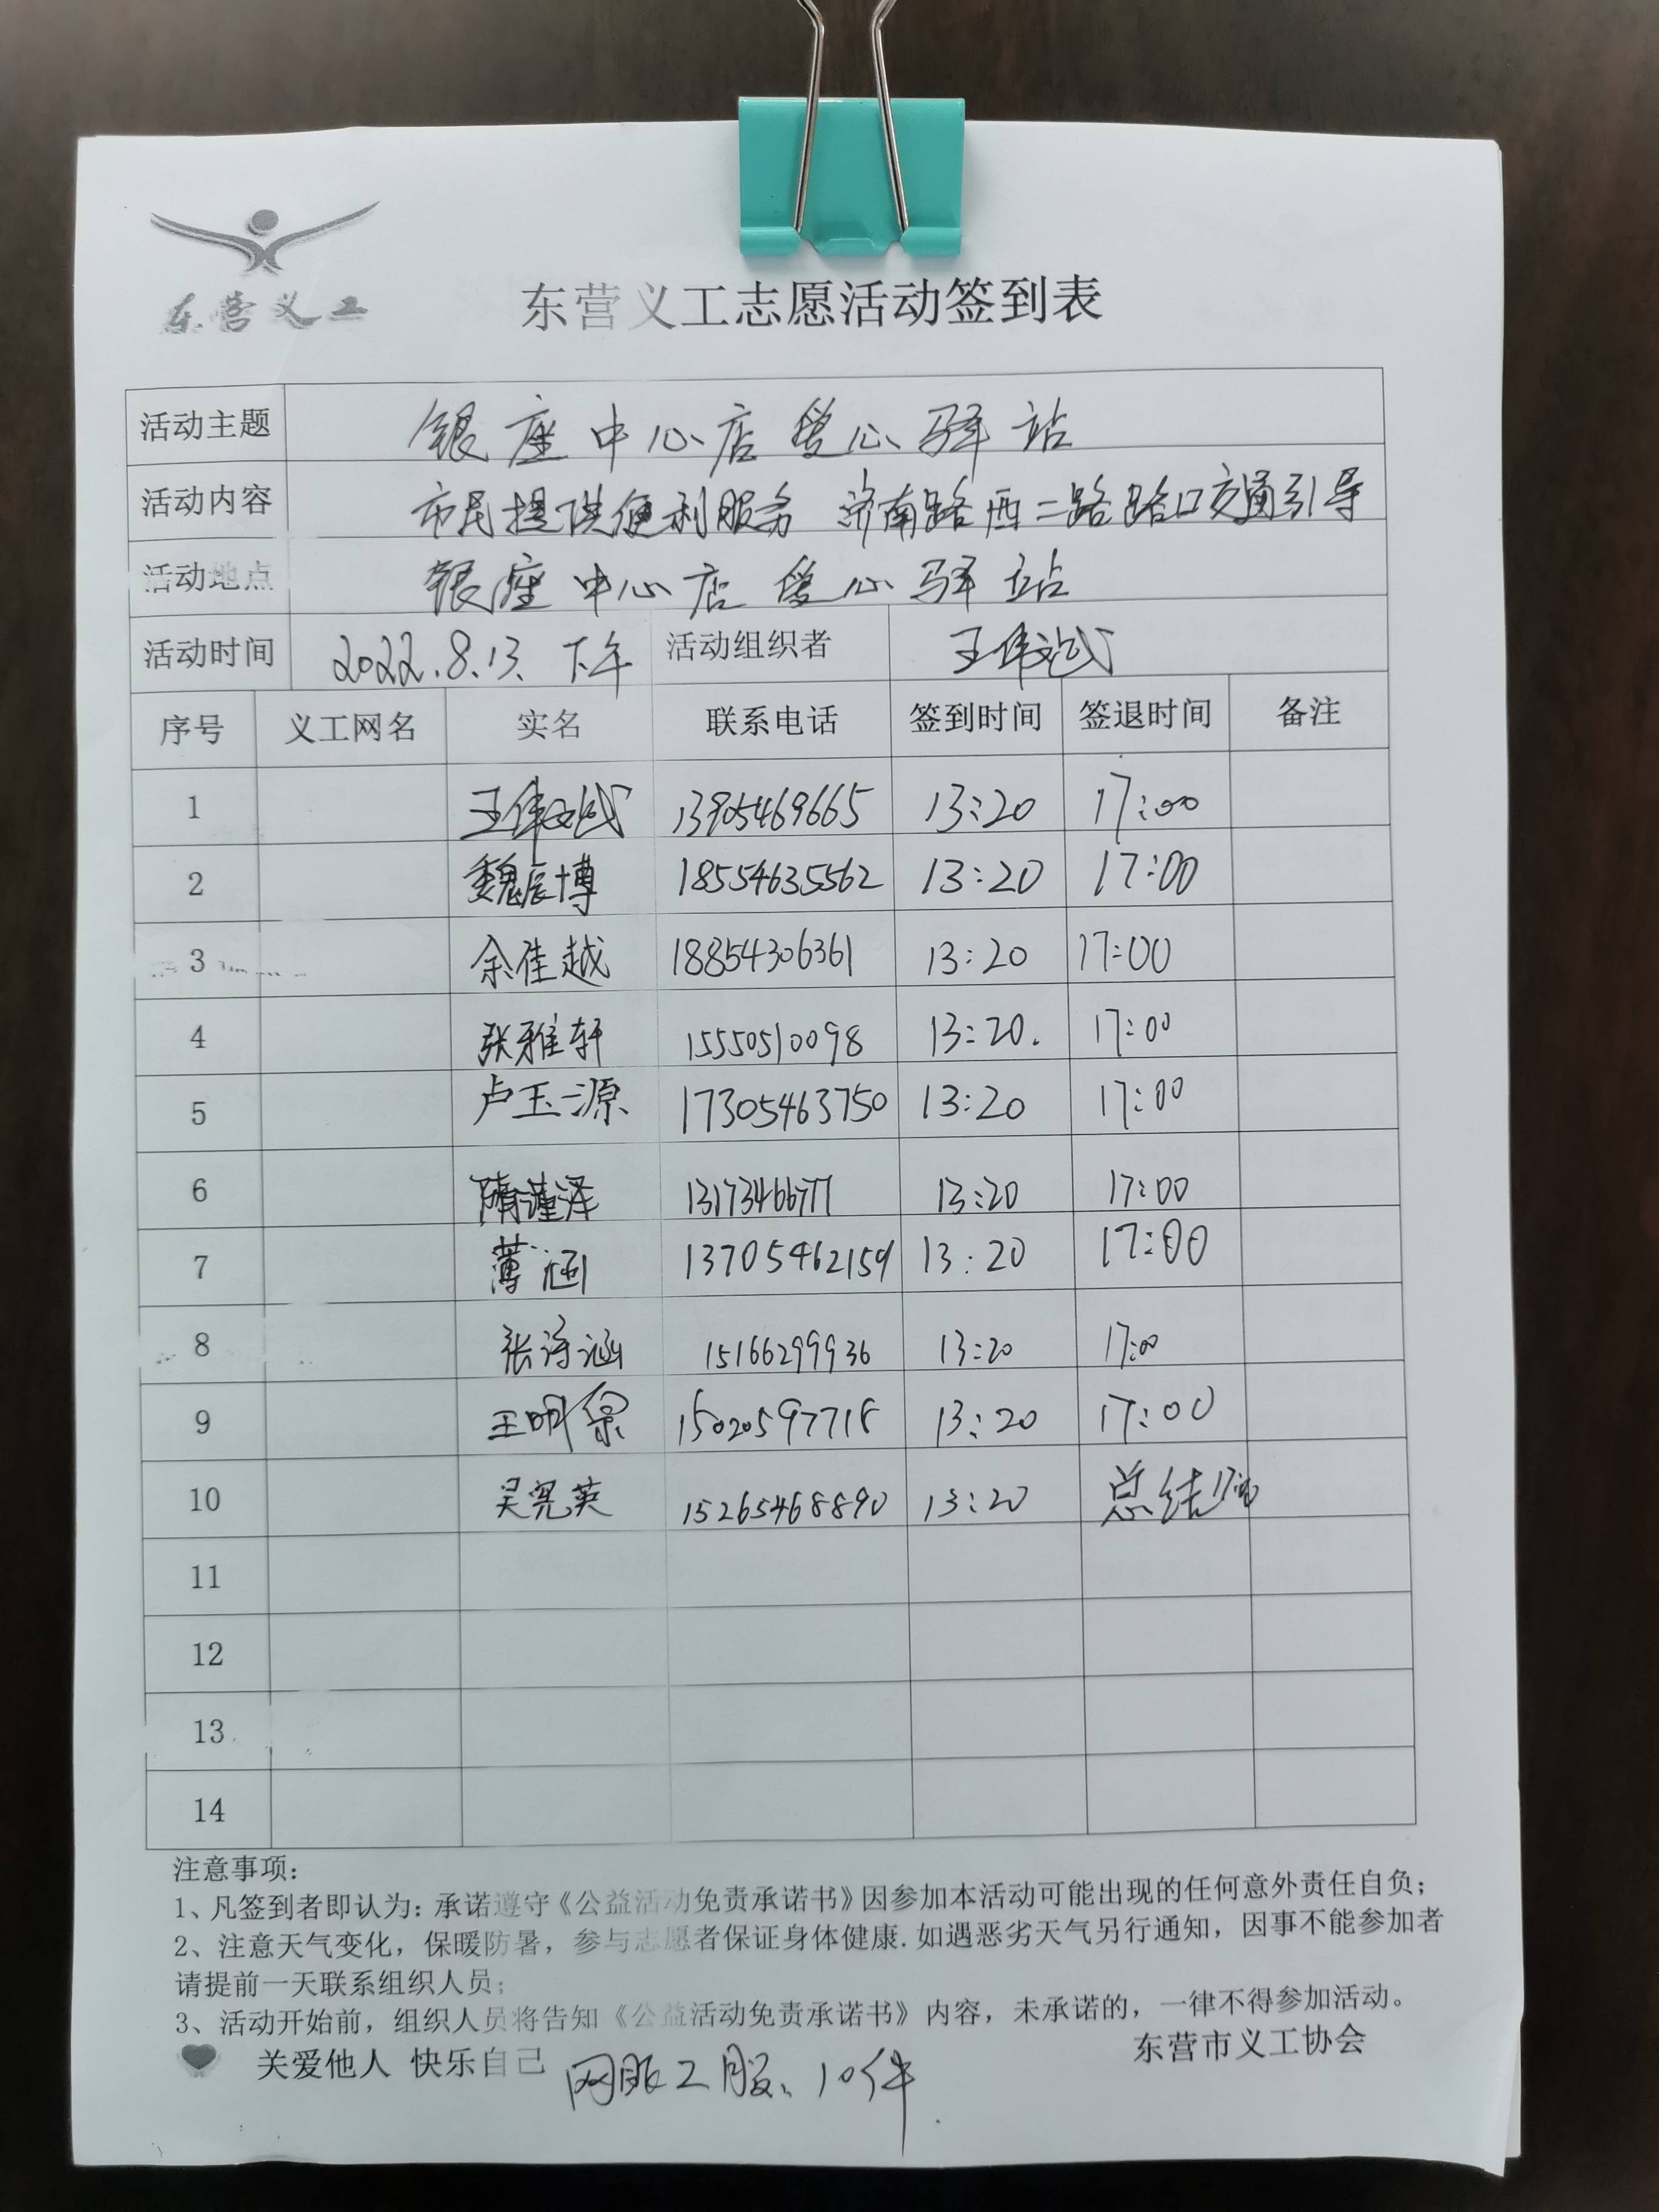 东营义工
东营义工志愿活动签到表
活动主题 银座中心店爱心驿站
活动内容 市民提供便利服务 济南路西二路路口交通引导
活动地点 银座中心店爱心驿站
活动时间 2022.8.13. 下午 活动组织者
序号 义工网名 实名 联系电话 签到时间 签退时间 备注
1 13905469665 13:20 17:00
2 魏辰博 18554635562 13:20 17:00
3 余佳越 18854306361 13:20 17:00
4 张雅轩 15550510098 13:20. 17:00
5 卢玉源 17305463750 13:20 17:00
6 隋谨泽 13173466777 13:20 17:00
7 薄涵 13705462159 13:20 17:00
8 张诗涵 15166299936 13:20 17:00
9 15020597718 13:20 17:00
10 15265468890 13:20 总结
11
12
13
14
注意事项：
1、凡签到者即认为：承诺遵守《公益活动免责承诺书》因参加本活动可能出现的任何意外责任自负；
2、注意天气变化，保暖防暑，参与志愿者保证身体健康.如遇恶劣天气另行通知，因事不能参加者
请提前一天联系组织人员；
3、活动开始前，组织人员将告知《公益活动免责承诺书》内容，未承诺的，一律不得参加活动。
东营市义工协会
关爱他人 快乐自己 10件